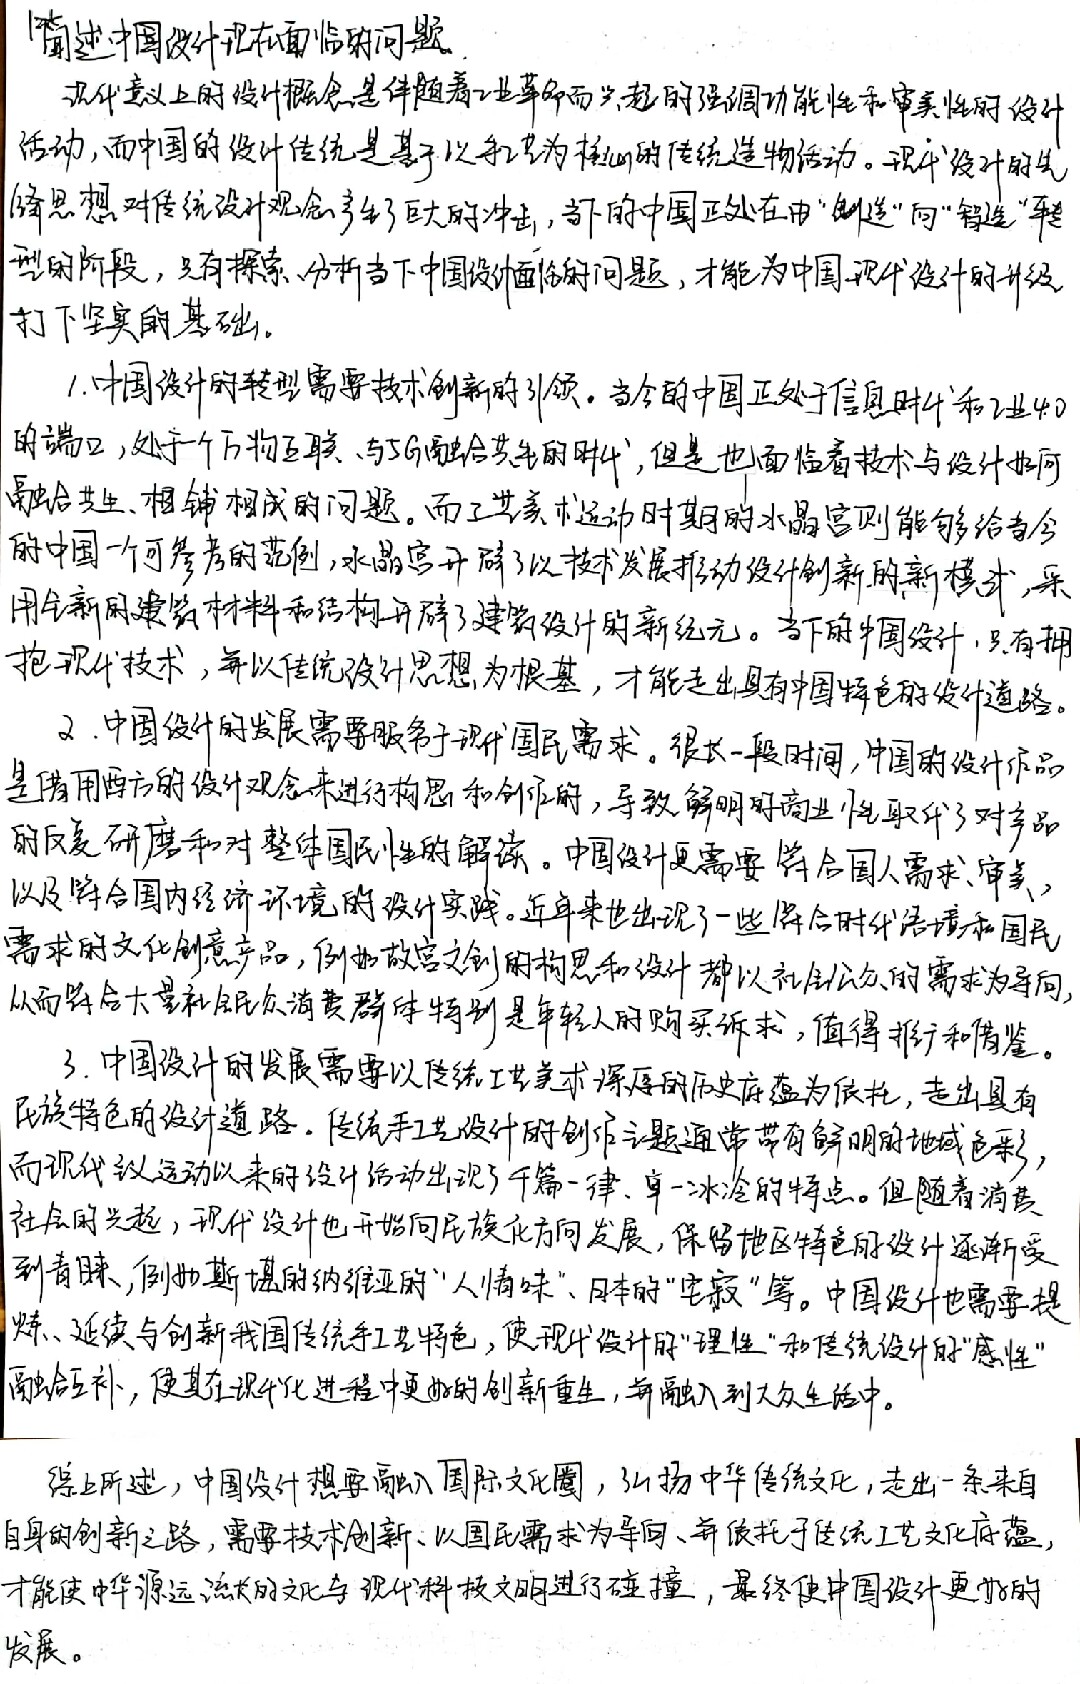 简述中国设计现在面临的问题.
现代意义上的设计概念是伴随着工业革命而兴起的强调功能性和审美性的设计
活动,而中国的设计传统是基于以手工艺为核心的传统造物活动。现代设计的先
锋思想对传统设计观念产生了巨大的冲击,当下的中国正处在由“制造”向“智造”转
型的阶段,只有探索、分析当下中国设计面临的问题,才能为中国现代设计的升级
打下坚实的基础。
1.中国设计的转型需要技术创新的引领。当今的中国正处于信息时代和工业4.0
的端口,处于一个万物互联、与5G融合共生的时代,但是也面临着技术与设计如何
融合共生、相铺相成的问题。而工艺美术运动时期的水晶宫则能够给当今
的中国一个可参考的范例,水晶宫开辟了以技术发展推动设计创新的新模式,采
用全新的建筑材料和结构开辟了建筑设计的新纪元。当下的中国设计,只有拥
抱现代技术,并以传统设计思想为根基,才能走出具有中国特色的设计道路。
2.中国设计的发展需要服务于现代国民需求。很长一段时间,中国的设计作品
是借用西方的设计观念来进行构思和创作的,导致鲜明的商业性取代了对产品
的反复研磨和对整体国民性的解读。中国设计更需要符合国人需求、审美,
以及符合国内经济环境的设计实践。近年来也出现了一些符合时代语境和国民
需求的文化创意产品,例如故宫文创的构思和设计都以社会公众的需求为导向,
从而符合大量社会民众消费群体特别是年轻人的购买诉求,值得推行和借鉴。
3.中国设计的发展需要以传统工艺美术深厚的历史底蕴为依托,走出具有
民族特色的设计道路.传统手工艺设计的创作主题通常带有鲜明的地域色彩,
而现代主义运动以来的设计活动出现了千篇一律、单一冰冷的特点。但随着消费
社会的兴起,现代设计也开始向民族化方向发展,保留地区特色的设计逐渐受
到青睐,例如斯堪的纳维亚的“人情味”、日本的“宅寂”等。中国设计也需要提
炼、延续与创新我国传统手工艺特色,使现代设计的“理性”和传统设计的“感性”
融合互补,使其在现代化进程中更好的创新重生,并融入到大众生活中。
综上所述,中国设计想要融入国际文化圈,弘扬中华传统文化,走出一条来自
自身的创新之路,需要技术创新、以国民需求为导向、并依托于传统工艺文化底蕴,
才能使中华源远流长的文化与现代科技文明进行碰撞,最终使中国设计更好的
发展。